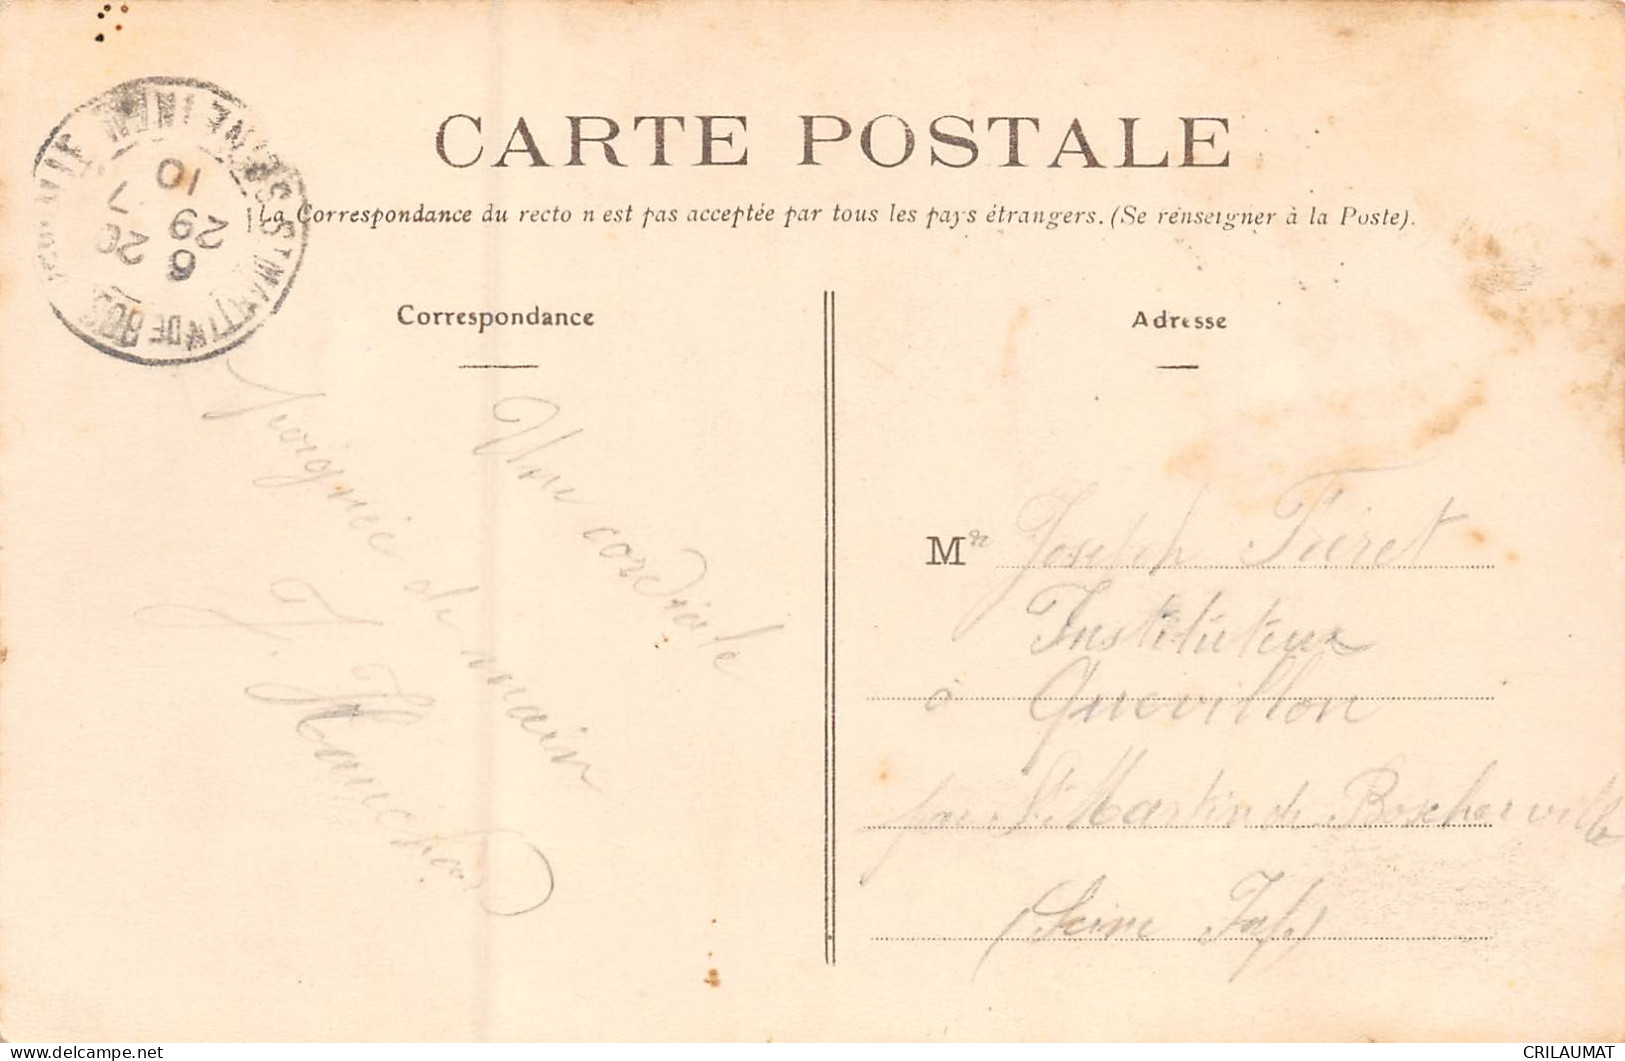 CARTE POSTALE
La Correspondance du recto n'est pas acceptée par tous les pays étrangers. (Se renseigner à la Poste).
Correspondance
Adresse
Une cordiale
poignée de main
J.
Mr Joseph Fréret
Instituteur
à Quevillon
par St Martin de Boscherville
(Seine Inf)
ST MARTIN DE BOS
SEINE INFRE
7 10
20 29
6
CRILAUMAT